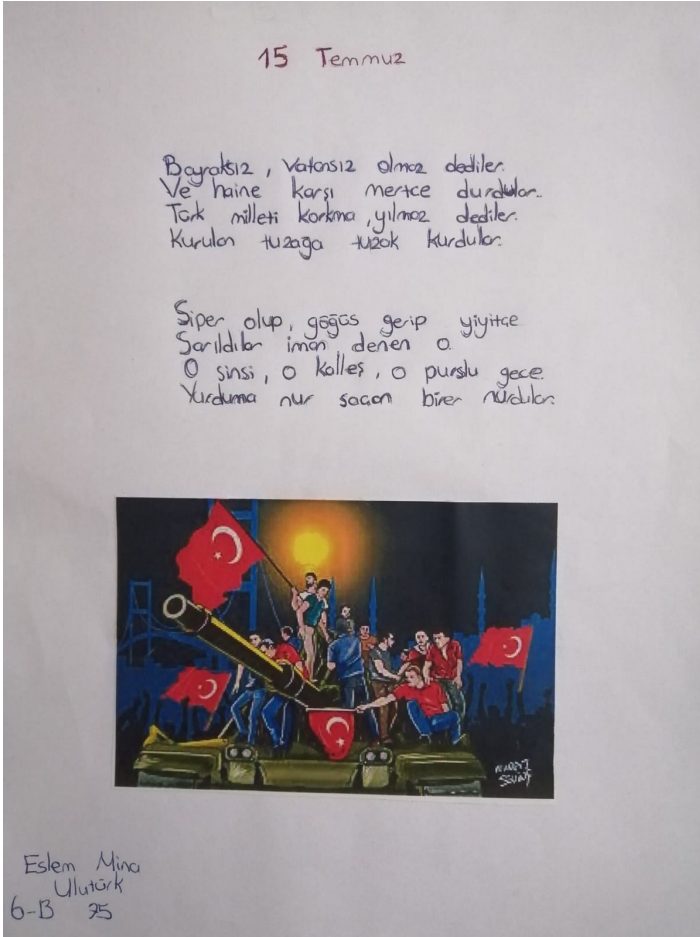 15 Temmuz
Bayraksız, Vatansız olmaz dediler.
Ve haine karşı mertce durdular..
Türk milleti korkma, yılmaz dediler.
Kurulan tuzağa tuzak kurdular.
Siper olup, göğüs gerip yiyitçe
Sarıldılar iman denen o
O sinsi, o kalleş, o puslu gece
Yurduma nur saçan birer nurdular.
Eslem Mina
Ulutürk
6-B 75